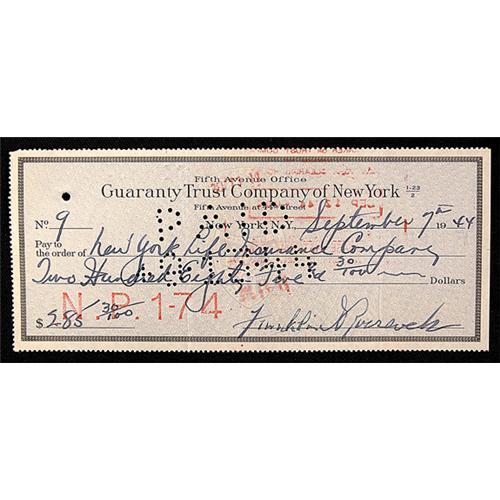 Fifth Avenue Office
Guaranty Trust Company of New York 1-23/2
Fifth Avenue at 44th Street
No. 9 New York, N.Y. September 7th 1944
Pay to
the order of New York Life Insurance Company
Two Hundred Eighty Five & 30/100 Dollars
N.P. 1-74
$285 30/100 Franklin D Roosevelt
PAID